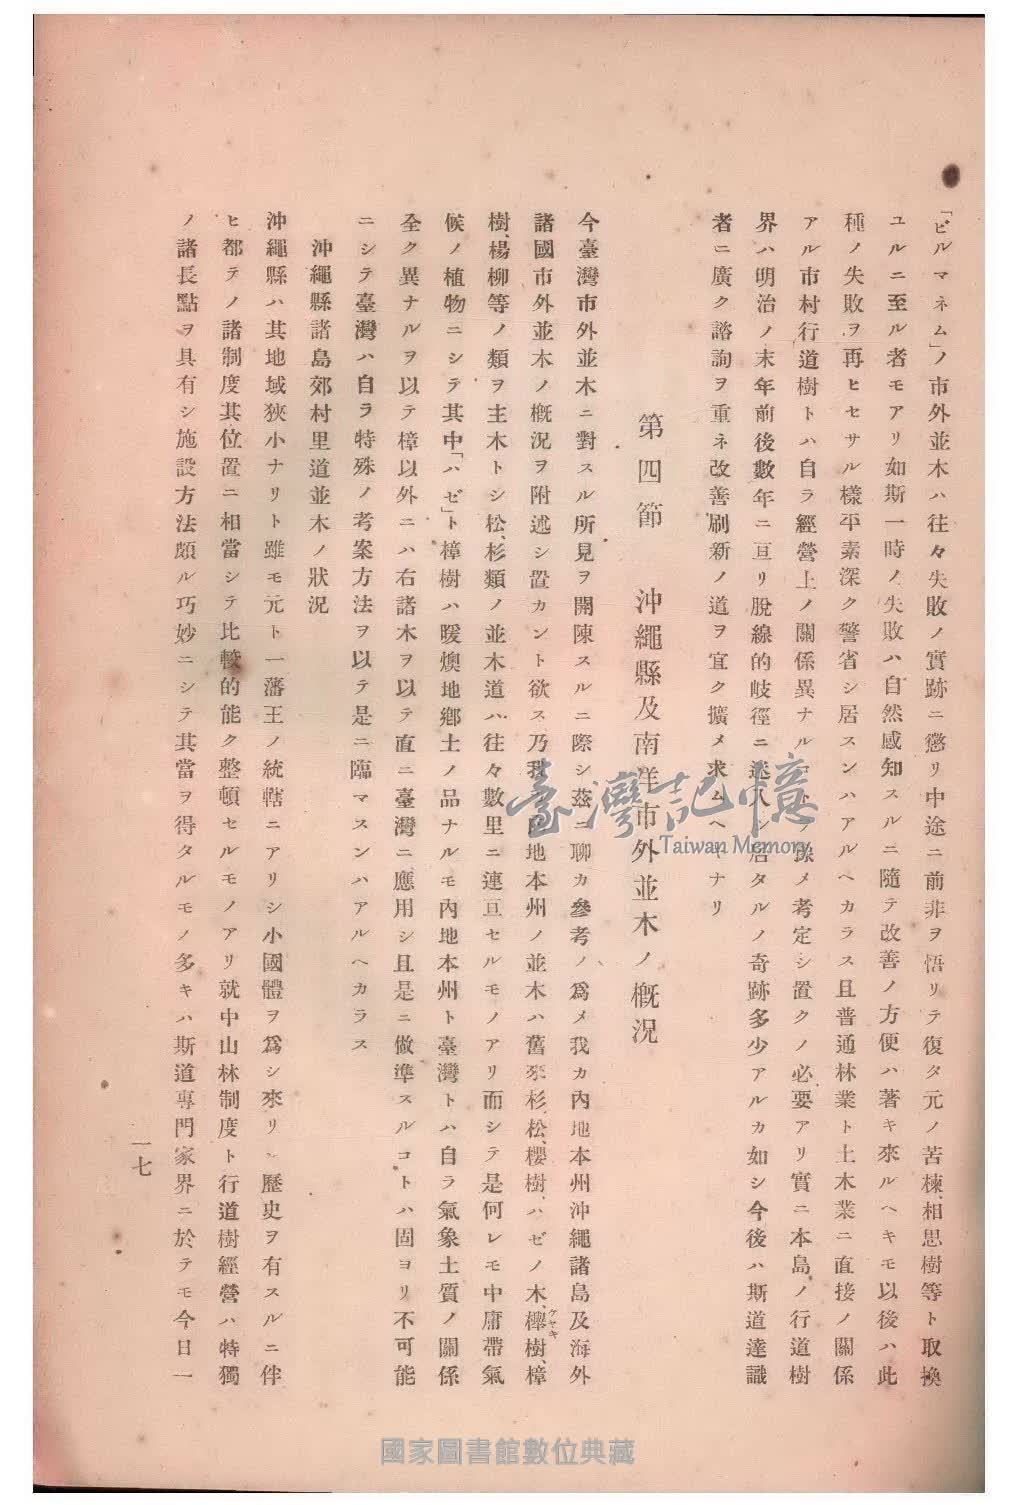 「ビルマネム」ノ市外並木ハ往々失敗ノ實跡ニ懲リ中途ニ前非ヲ悟リテ復タ元ノ苦楝、相思樹等ト取換
ユルニ至ル者モアリ如斯一時ノ失敗ハ自然感知スルニ隨テ改善ノ方便ハ著キ來ルヘキモ以後ハ此
種ノ失敗ヲ再ヒセサル樣平素深ク警省シ居スンハアルヘカラス且普通林業ト土木業ニ直接ノ關係
アル市村行道樹トハ自ラ經營上ノ關係異ナルコトヲ豫メ考定シ置クノ必要アリ實ニ本島ノ行道樹
界ハ明治ノ末年前後數年ニ亘リ脫線的岐徑ニ迷入シ居タルノ奇跡多少アルカ如シ今後ハ斯道達識
者ニ廣ク諮詢ヲ重ネ改善刷新ノ道ヲ宜ク擴メ求ムヘキナリ
第四節 沖繩縣及南洋市外並木ノ概況
今臺灣市外並木ニ對スル所見ヲ開陳スルニ際シ茲ニ聊カ參考ノ爲メ我カ內地本州沖繩諸島及海外
諸國市外並木ノ概況ヲ附述シ置カント欲ス乃我カ內地本州ノ並木ハ舊來杉、松、櫻樹、ハゼノ木、欅樹、樟
ケヤキ
樹、楊柳等ノ類ヲ主木トシ松、杉類ノ並木道ハ往々數里ニ連亘セルモノアリ而シテ是何レモ中庸帶氣
候ノ植物ニシテ其中「ハゼ」ト樟樹ハ暖燠地鄕土ノ品ナルモ內地本州ト臺灣トハ自ラ氣象土質ノ關係
全ク異ナルヲ以テ樟以外ニハ右諸木ヲ以テ直ニ臺灣ニ應用シ且是ニ倣準スルコトハ固ヨリ不可能
ニシテ臺灣ハ自ラ特殊ノ考案方法ヲ以テ是ニ臨マスンハアルヘカラス
沖繩縣諸島郊村里道並木ノ狀況
沖繩縣ハ其地域狹小ナリト雖モ元ト一藩王ノ統轄ニアリシ小國體ヲ爲シ來リシ歷史ヲ有スルニ伴
ヒ都テノ諸制度其位置ニ相當シテ比較的能ク整頓セルモノアリ就中山林制度ト行道樹經營ハ特獨
ノ諸長點ヲ具有シ施設方法頗ル巧妙ニシテ其當ヲ得タルモノ多キハ斯道專門家界ニ於テモ今日一
一七
臺灣記憶
Taiwan Memory
國家圖書館數位典藏